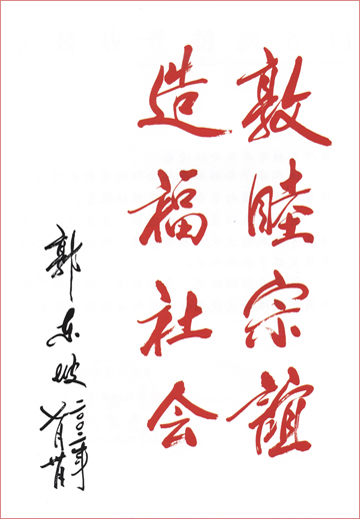 敦睦宗誼
造福社会
郭东坡
二〇〇二年